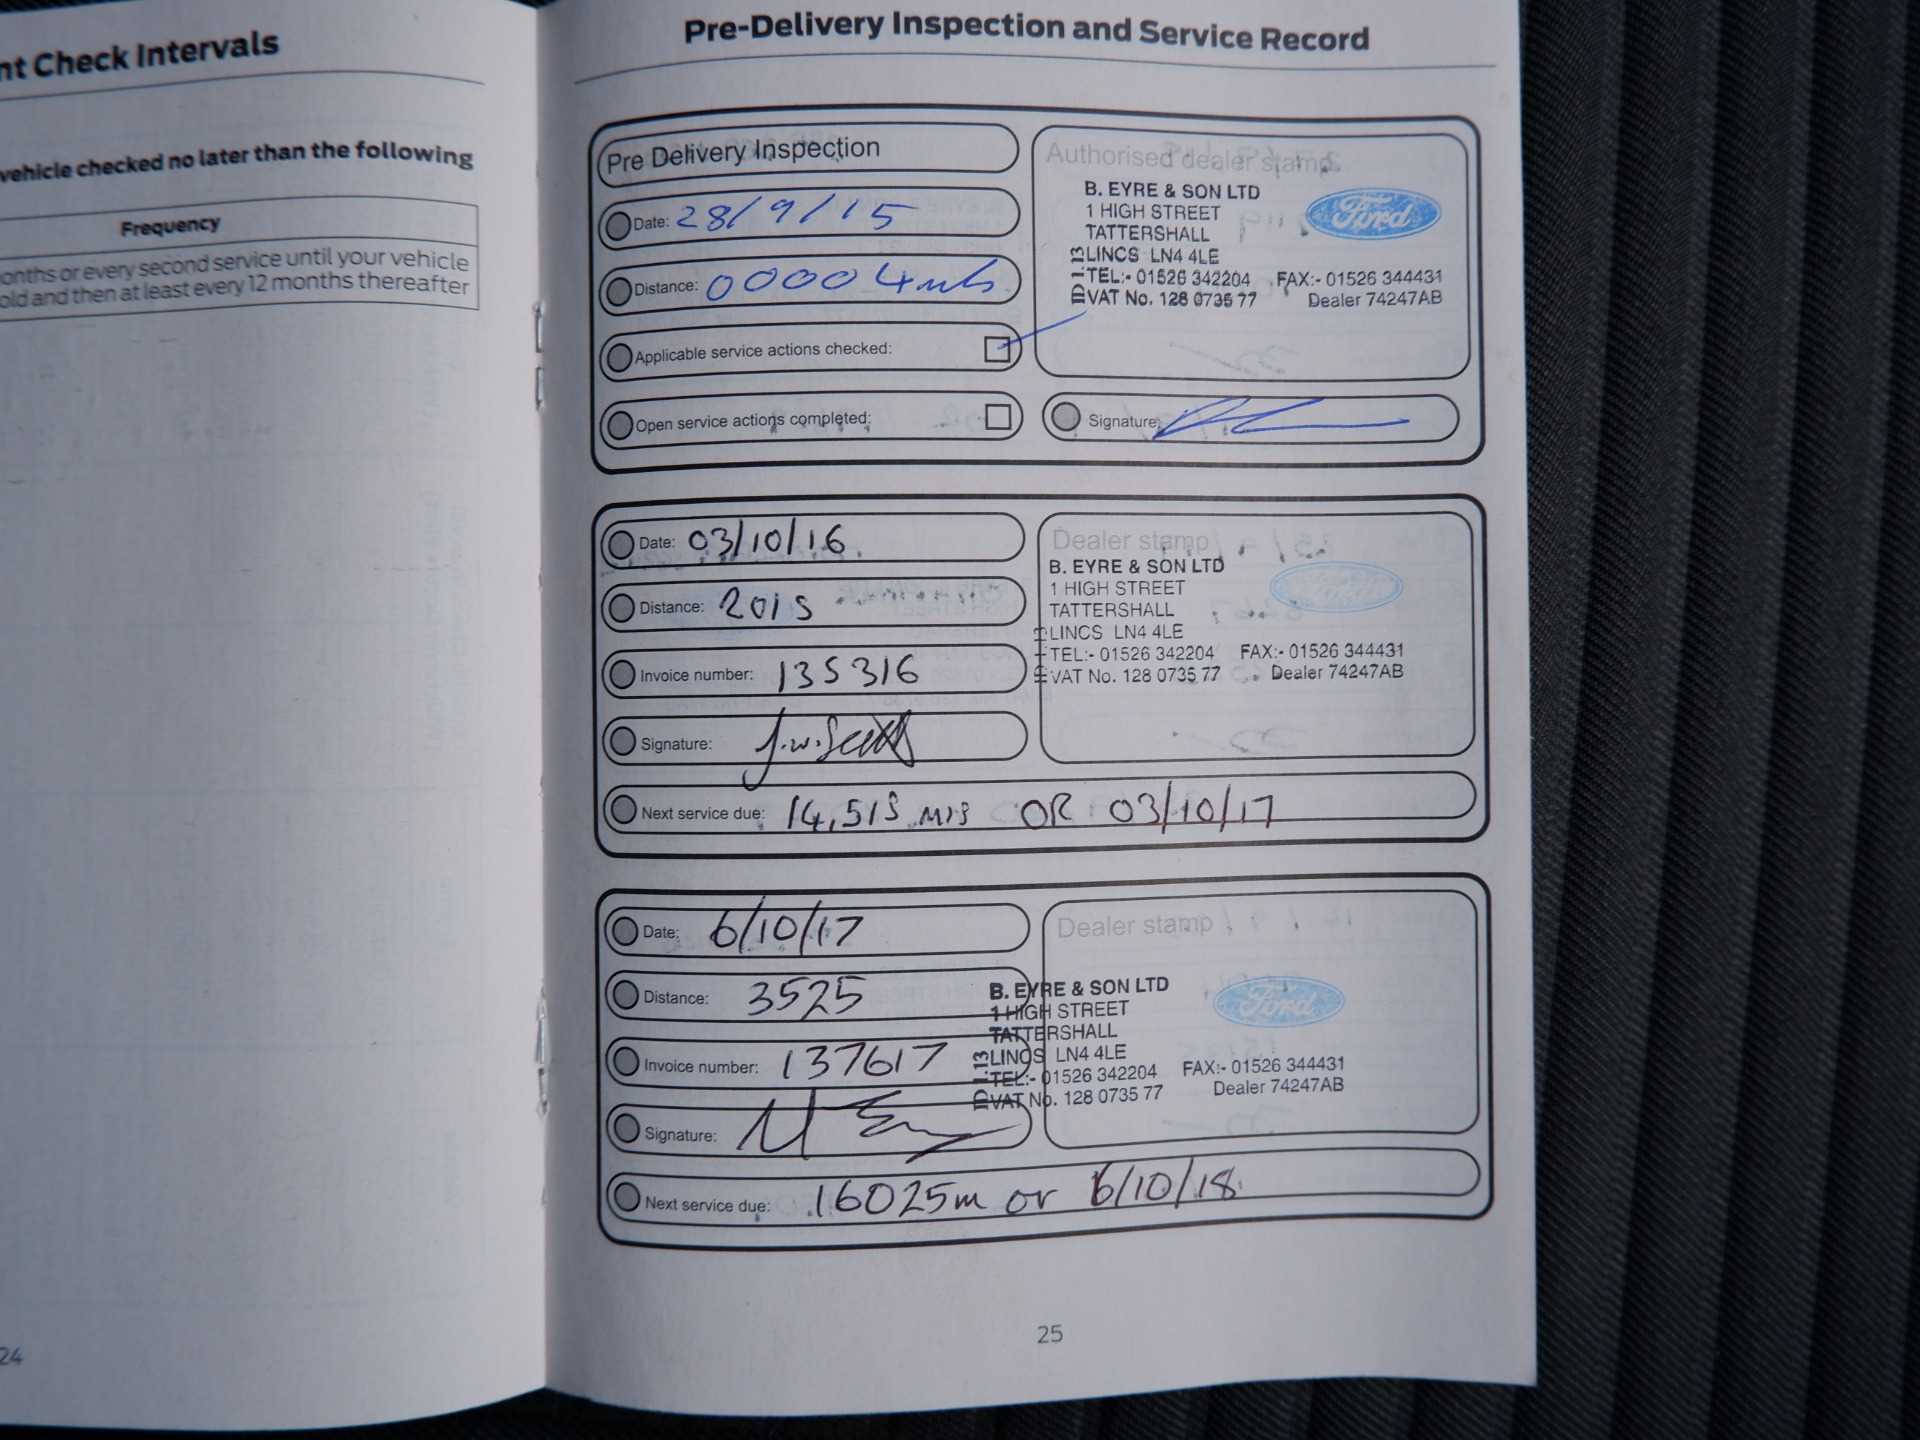 nt Check Intervals
vehicle checked no later than the following
Frequency
onths or every second service until your vehicle
old and then at least every 12 months thereafter
24
Pre-Delivery Inspection and Service Record
Pre Delivery Inspection
Date: 28/9/15
Distance: 00004 mls
Applicable service actions checked:
Open service actions completed:
Authorised dealer stamp
B. EYRE & SON LTD
1 HIGH STREET
TATTERSHALL
LINCS LN4 4LE
TEL:- 01526 342204 FAX:- 01526 344431
VAT No. 128 0735 77 Dealer 74247AB
ID 1.13
Ford
Signature:
Date: 03/10/16
Distance: 2015
Invoice number: 135316
Signature: J.W.Scott
Next service due: 14,515 MLS OR 03/10/17
Dealer stamp
B. EYRE & SON LTD
1 HIGH STREET
TATTERSHALL
LINCS LN4 4LE
TEL:- 01526 342204 FAX:- 01526 344431
VAT No. 128 0735 77 Dealer 74247AB
Ford
Date: 6/10/17
Distance: 3525
Invoice number: 137617
Signature:
Next service due: 16025m or 6/10/18
Dealer stamp
B. EYRE & SON LTD
1 HIGH STREET
TATTERSHALL
LINCS LN4 4LE
TEL:- 01526 342204 FAX:- 01526 344431
VAT No. 128 0735 77 Dealer 74247AB
ID 1.13
Ford
25